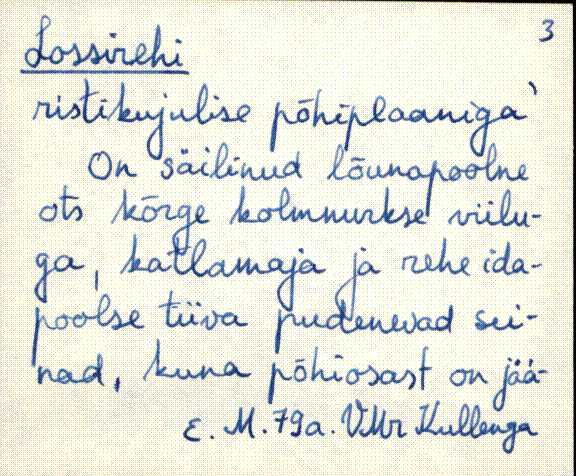 3
Lossirehi
ristikujulise põhiplaaniga
On säilinud lõunapoolne
ots kõrge kolmnurkse viilu-
ga, katlamaja ja rehe ida-
poolse tiiva pudenevad sei-
nad, kuna põhiosast on jää-
E. M. 79a. VMr Kullenga